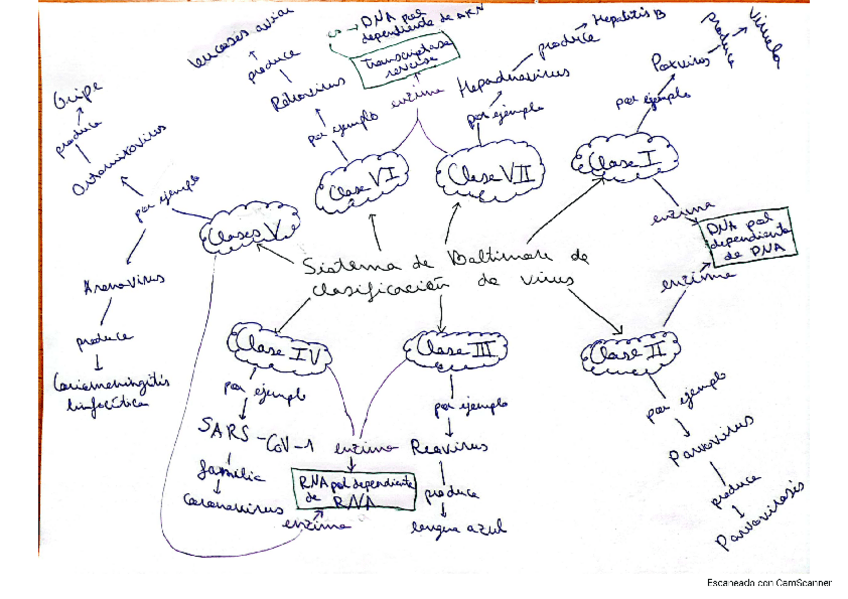 leucosis aviar
produce
Retrovirus
por ejemplo
DNA pol
dependiente de ARN
Transcriptasa
reversa
enzima
Hepatitis B
produce
Hepadnavirus
por ejemplo
Viruela
produce
Poxvirus
por ejemplo
Gripe
produce
Ortomixovirus
por ejemplo
Clase VI
Clase VII
Clase I
Clases V
enzima
DNA pol
dependiente
de DNA
enzima
Sistema de Baltimore de
clasificación de virus
Arenavirus
produce
Coriomeningitis
linfocítica
Clase IV
Clase III
Clase II
por ejemplo
SARS-CoV-1
familia
Coronavirus
enzima
RNA pol dependiente
de RNA
enzima
por ejemplo
Reovirus
produce
lengua azul
por ejemplo
Parvovirus
produce
Parvovirosis
Escaneado con CamScanner